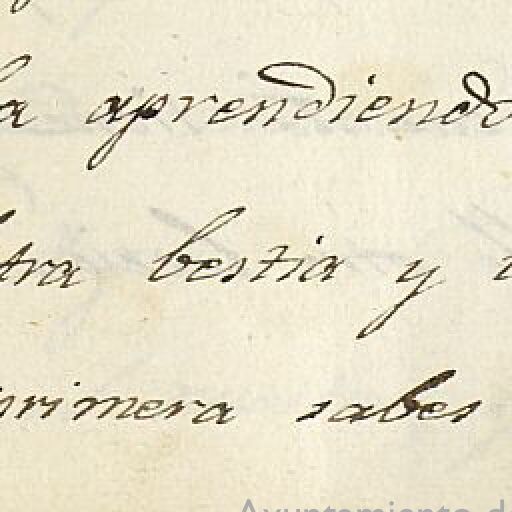 la aprendiendo
tra bestia y
primera sabes
Ayuntamiento de